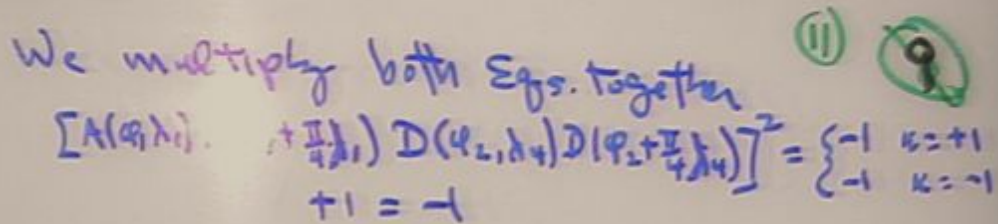 We multiply both Eqs. together (11)
[A(φ₁,λ₁) +π/4,λ₁) D(φ₂,λ₄)D(φ₂+π/4,λ₄)]² = {-1 κ=+1
-1 κ=-1
+1 = -1